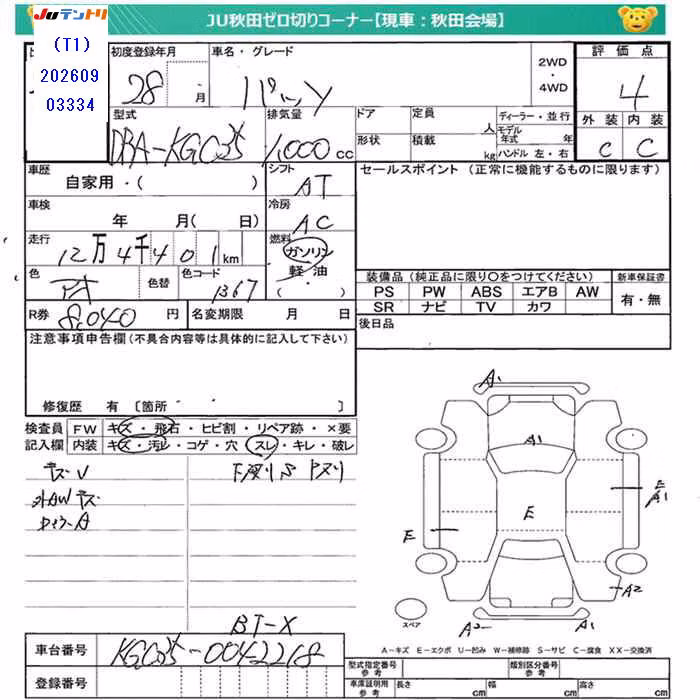 JUテントリ
(T1)
202609
03334
JU秋田ゼロ切りコーナー【現車：秋田会場】
初度登録年月 車名・グレード 評価点
28 ・ 月 パッソ 2WD ・ 4WD 4
型式 排気量 ドア 定員 人 ディーラー・並行 外装 内装
DBA-KGC35 1,000 cc 形状 積載 kg モデル年式 年 ハンドル 左・右 C C
車歴 シフト セールスポイント (正常に機能するものに限ります)
自家用・( ) AT
車検 冷房
年 月( 日) AC
走行 燃料
12万4千401km ガソリン
色 色替 色コード 軽油
1367 ・( )
装備品 (純正品に限り〇をつけてください) 新車保証書
PS PW ABS エアB AW 有・無
SR ナビ TV カワ
R券 8,040 円 名変期限 月 日 後日品
注意事項申告欄 (不具合内容等は具体的に記入して下さい)
修復歴 有 〔箇所 〕
検査員 FW キズ・飛石・ヒビ割・リペア跡・×要
記入欄 内装 キズ・汚レ・コゲ・穴・スレ・キレ・破レ
キズV 下廻りS
外AWキズ
A
BT-X
A1
A1
E
A1
E
E
A2
A2
A1
スペア
A－キズ E－エクボ U－凹み W－補修跡 S－サビ C－腐食 XX－交換済
車台番号 KGC35-0042218
登録番号
型式指定番号 参考 類別区分番号 参考
車庫証明用 参考 長さ cm 幅 cm 高さ cm